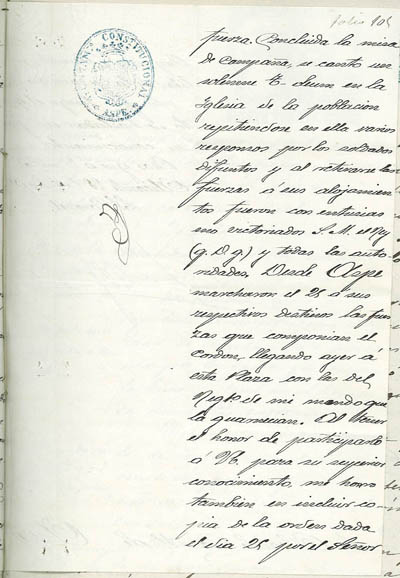 folio 105
CONSTITUCIONAL
ASPE
fuerza. Concluida la misa
de Campaña, se cantó un
solemne Te-deum en la
Iglesia de la poblacion
repitiendose en ella varios
responsos por los soldados
difuntos y al retirarse las
fuerzas á sus alojamien
tos fueron con entusias
mo victoriados S. M. el Rey
(q. D. g.) y todas las auto
ridades. Desde Aspe
marcharon el 25 á sus
respectivos destinos las fuer
zas que componian el
Cordon, llegando ayer á
esta Plaza con las del
Regto de mi mando que
la guarnecian. Al tener
el honor de participarlo
á VE. para su superior
conocimiento, me honro
tambien en incluir co
pia de la orden dada
el dia 25 por el Señor